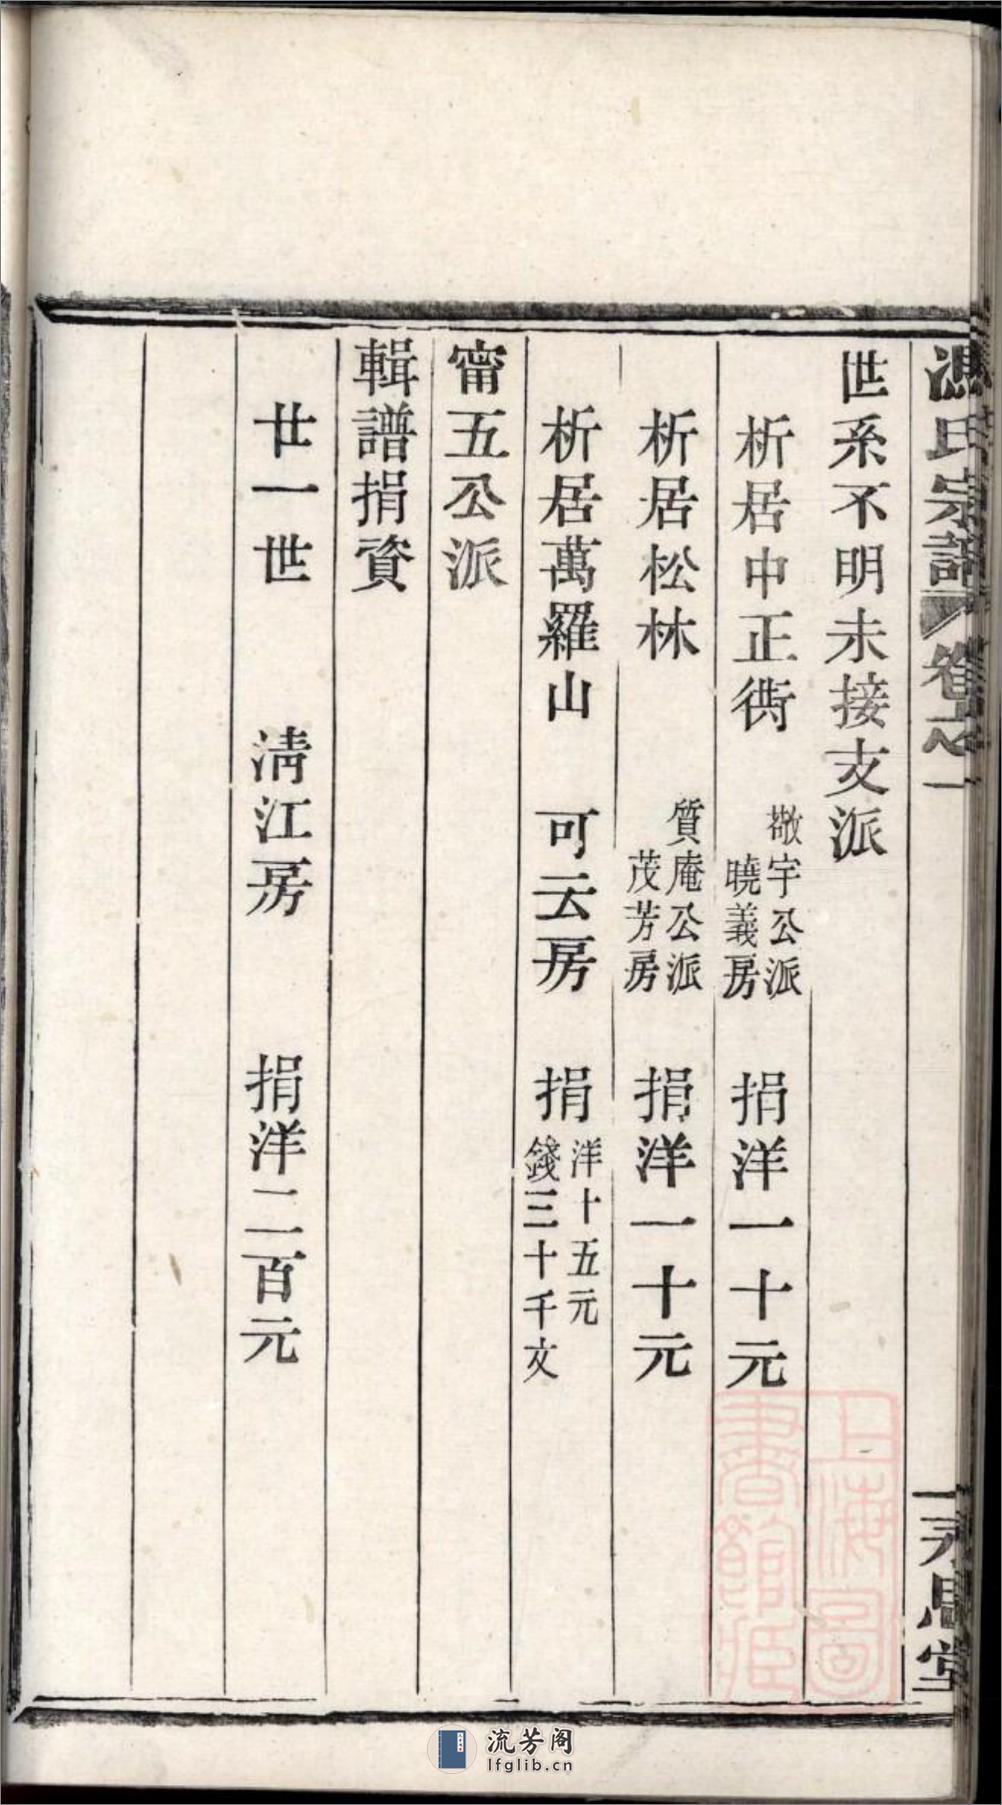 馮氏宗譜 卷之一
世系不明未接支派
析居中正衖 敬宇公派 曉義房 捐洋一十元
析居松林 質庵公派 茂芳房 捐洋一十元
析居萬羅山 可云房 捐 洋十五元 錢三十千文
甯五公派
輯譜捐資
廿一世 淸江房 捐洋二百元
一 永思堂
上海圖書館藏
流芳阁
lfglib.cn